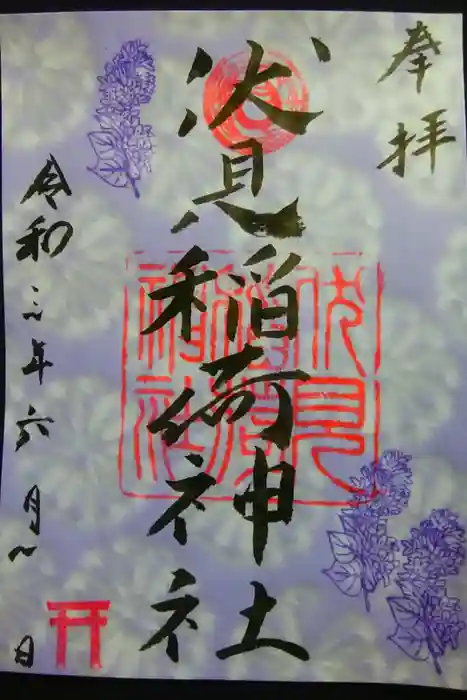 奉拝
伏見稲荷神社
伏見
稲荷
神社
令和三年六月 日